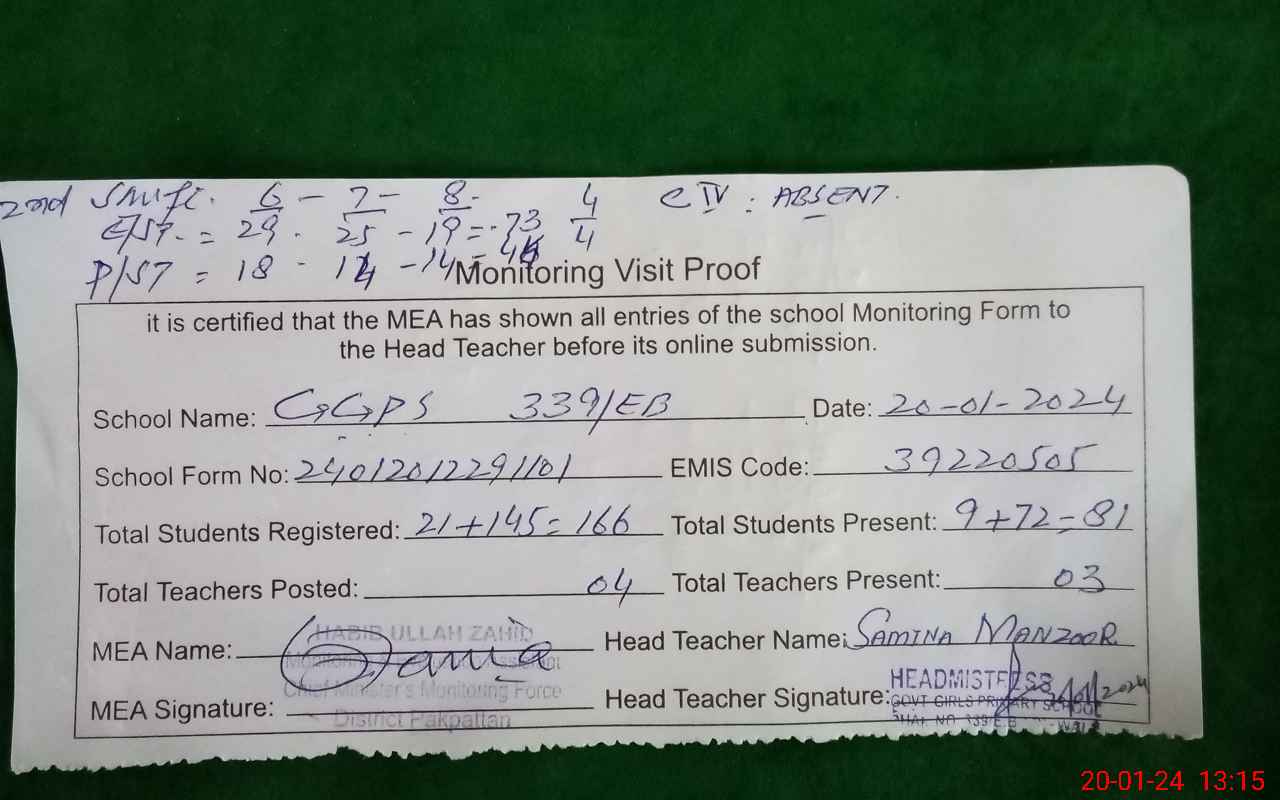 2nd Shift. 6 - 7 - 8 - 4 CIV : ABSENT.
E/ST. = 29 - 25 - 19 = 73 4
P/ST = 18 - 14 - 14 =
Monitoring Visit Proof
it is certified that the MEA has shown all entries of the school Monitoring Form to
the Head Teacher before its online submission.
School Name: GGPS 339/EB Date: 20-01-2024
School Form No: 24012012291101 EMIS Code: 39220505
Total Students Registered: 21+145=166 Total Students Present: 9+72=81
Total Teachers Posted: 04 Total Teachers Present: 03
HABIB ULLAH ZAHID
MEA Name: Head Teacher Name: SAMINA MANZOOR
Chief Minister's Monitoring Force
MEA Signature: Head Teacher Signature: HEADMISTRESS
District Pakpattan
GOVT GIRLS PRIMARY SCHOOL
CHAK NO 339/E.B
20-01-24 13:15